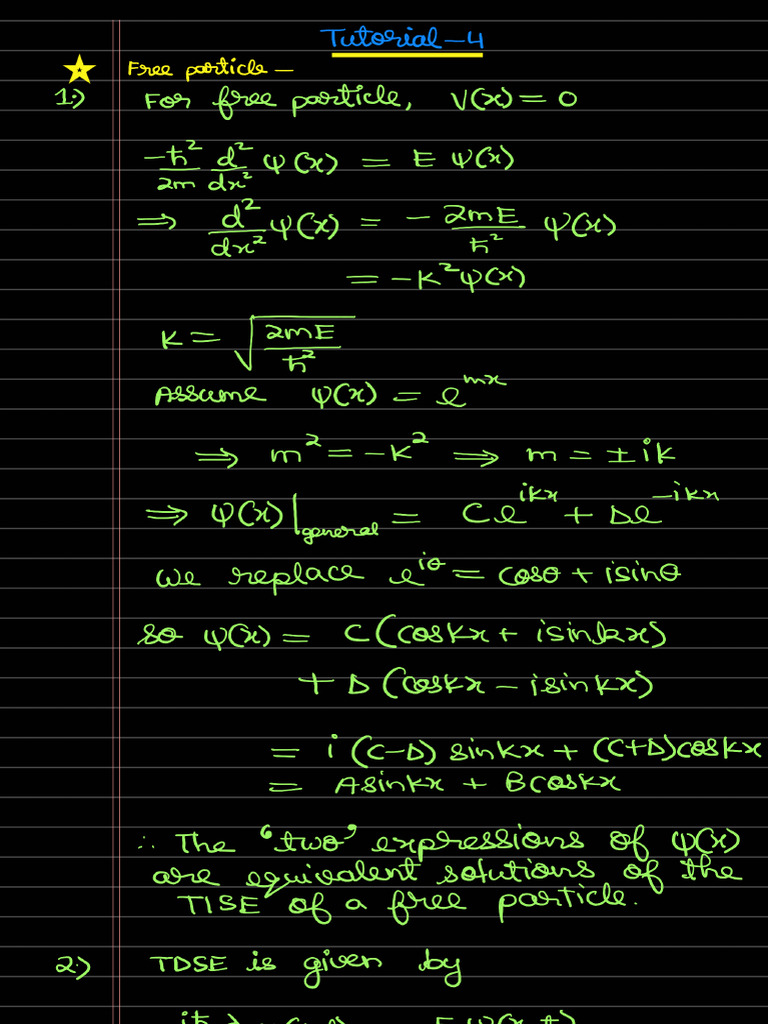 Tutorial-4
Free particle-
1:) For free particle, V(x) = 0
-ħ²/2m d²/dx² ψ(x) = E ψ(x)
⇒ d²/dx² ψ(x) = - 2mE/ħ² ψ(x)
= -k²ψ(x)
k = √(2mE/ħ²)
Assume ψ(x) = e^mx
⇒ m² = -k² ⇒ m = ±ik
⇒ ψ(x)|general = Ce^ikx + De^-ikx
we replace e^iθ = cosθ + isinθ
so ψ(x) = C(coskx + isinkx)
+ D(coskx - isinkx)
= i(C-D) sinkx + (C+D)coskx
= Asinkx + Bcoskx
∴ The 'two' expressions of ψ(x)
are equivalent solutions of the
TISE of a free particle.
2:) TDSE is given by